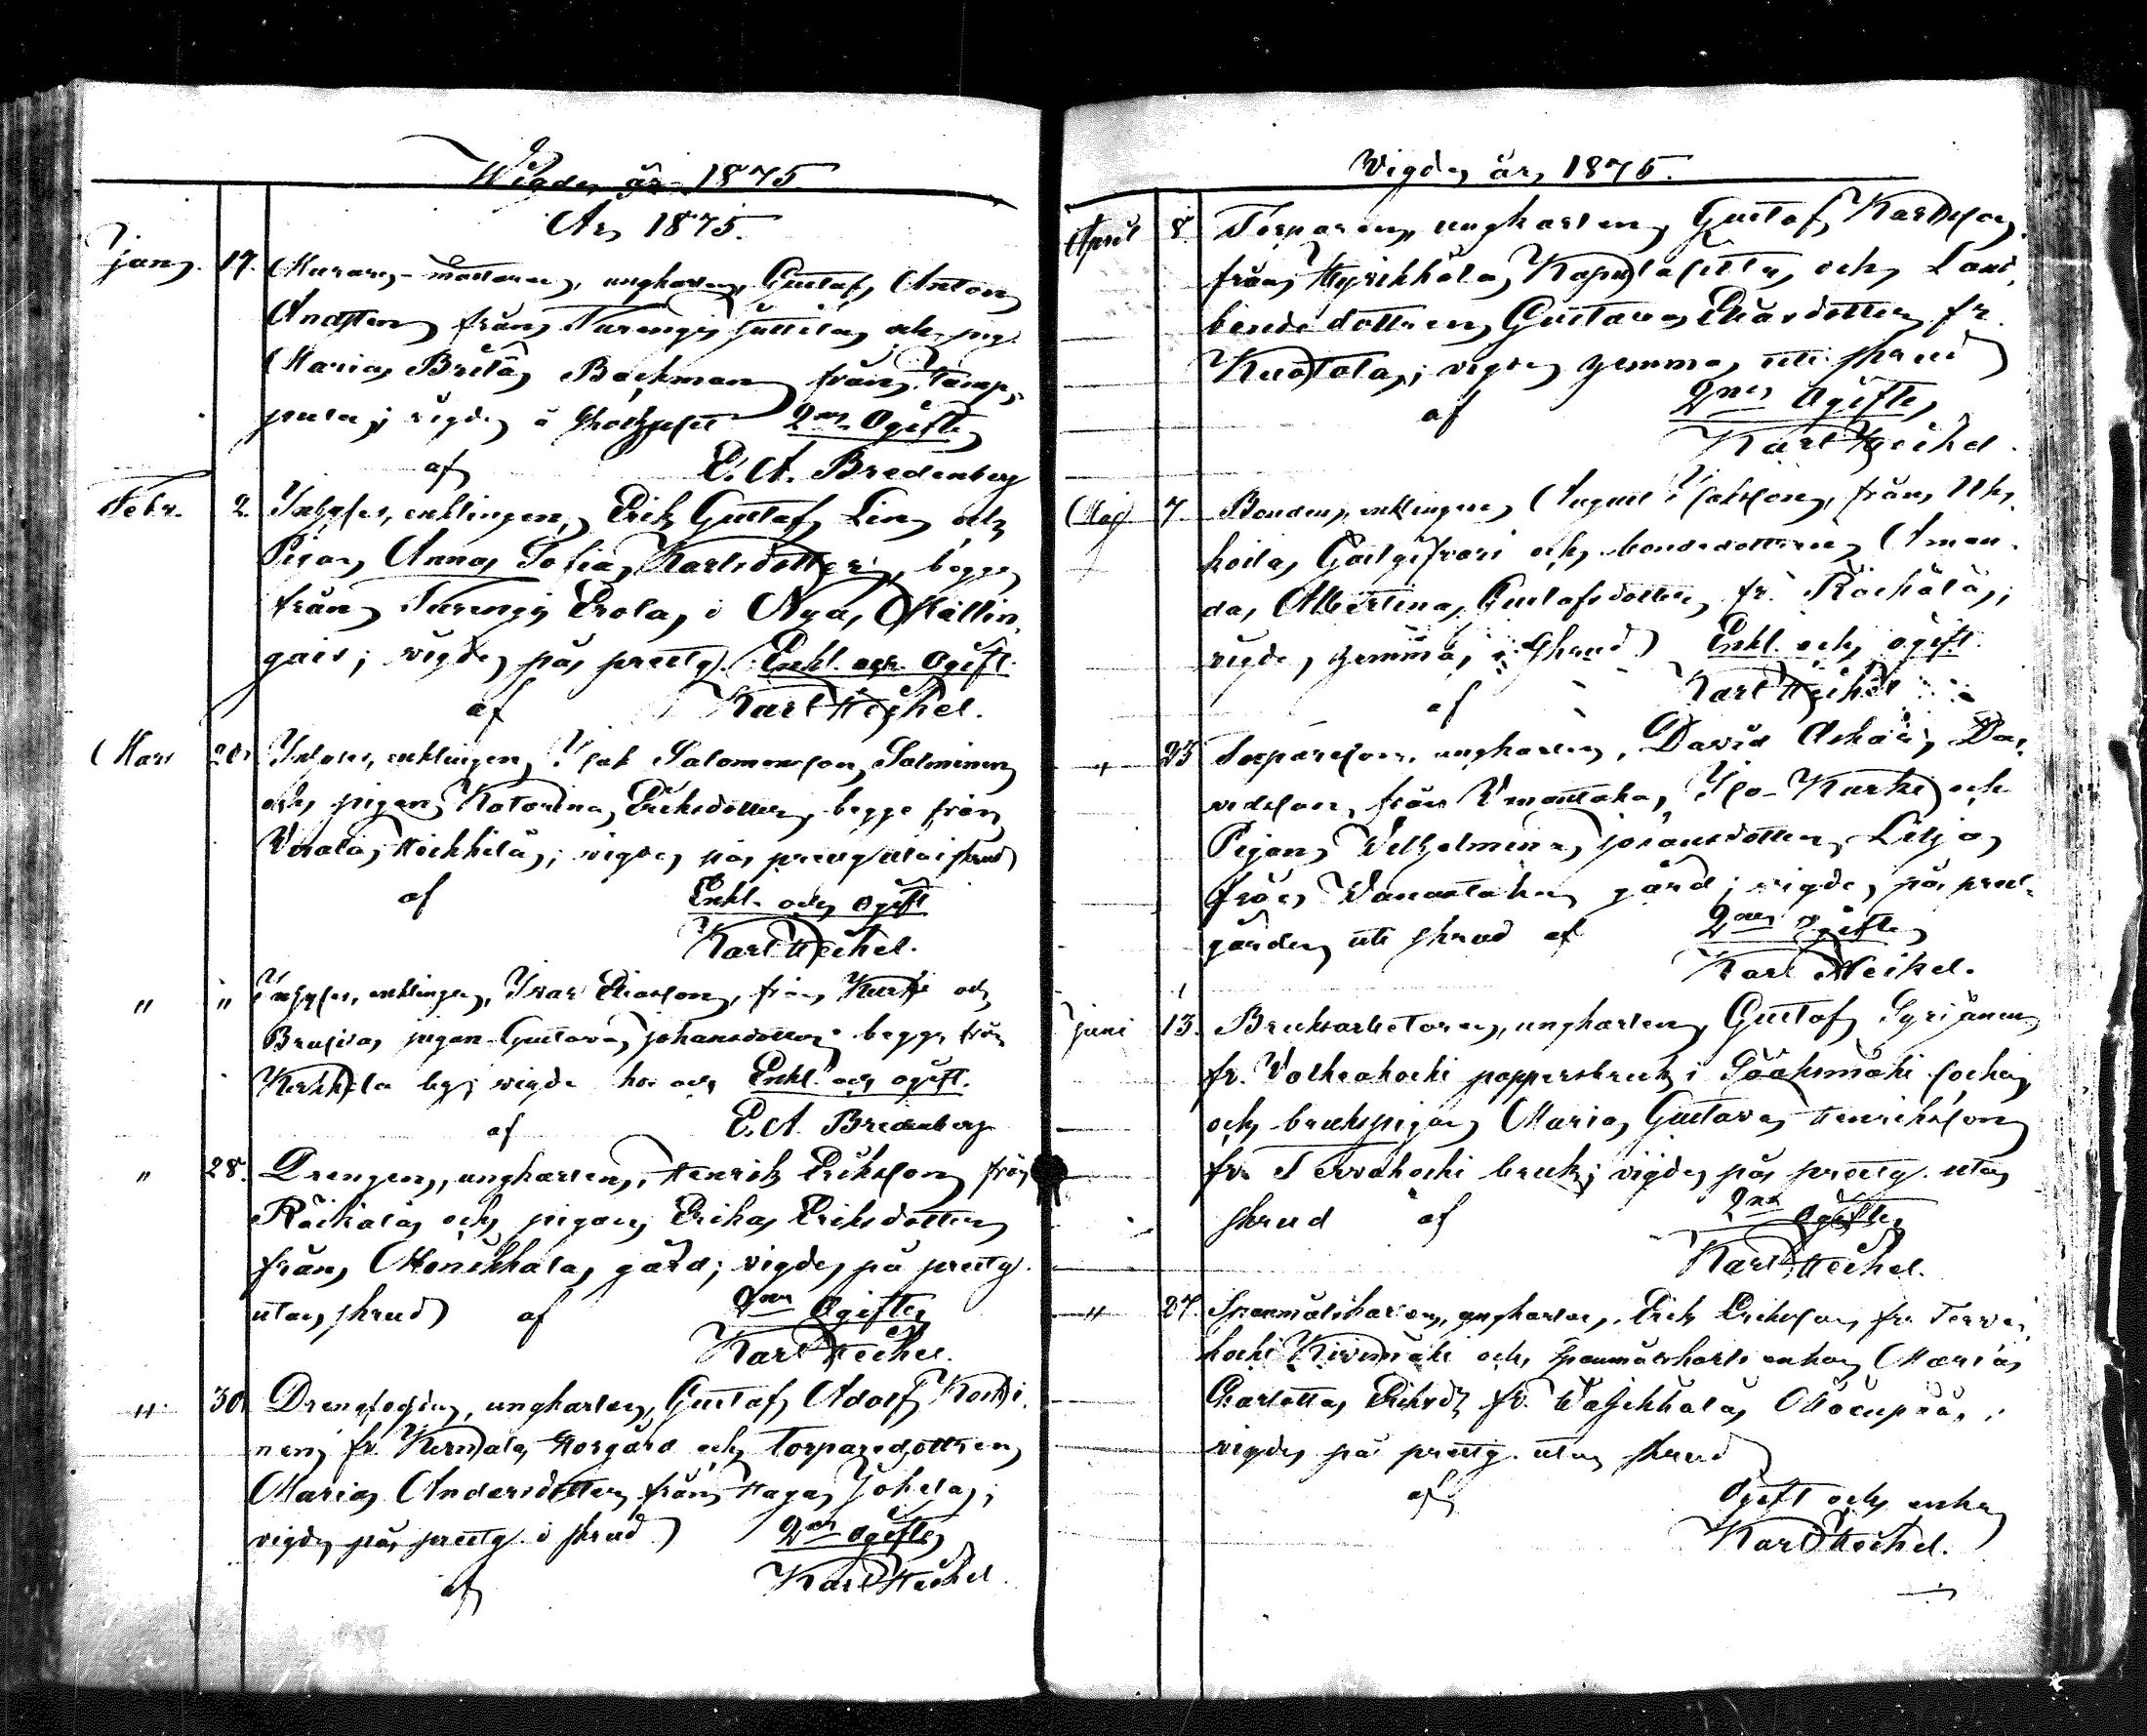 Wigde år 1875
År 1875.
Jan. 17. Murare-mästaren, ungkarlen, Gustaf Anton
från Turengi och pig.
Maria Brita Backman från Tamp-
pula; vigde å 2ne Ogifte
af E. A. Bredenberg
Febr. 2. Inhyses, enklingen, Erik Gustaf Lin och
Pigan Anna Sofia Karlsdotter, begge
från Turengi Erola i Nya Mällin
gais; vigde på prestg. Enkl. och Ogift.
af Karl Heikel.
Mars 20. Inhyses, enklingen, Isak Salomonsson Salminen
och pigan Katarina Eriksdotter, begge från
Uoiala, Heikkilä; vigde på prestg. utan skrud
af Enkl. och Ogift
Karl Heikel.
" " Inhyses, enklingen, Ivar Eliasson, från Kurki och
pigan Gustava Johansdotter begge från
by; vigde hos Enkl. och ogift.
af E. A. Bredenberg
" 28. Drengen, ungkarlen, Henrik Eriksson från
Räikälä och pigan Erika Eriksdotter
från Monikkala gård; vigde på prestg.
utan skrud af 2ne Ogifte
Karl Heikel.
" 30. ungkarlen, Gustaf Adolf Koski-
nen fr. Kernala Storgård och Torparedottren
Maria Andersdotter från Haga Johela;
vigde på prestg. i skrud 2ne ogifte
af Karl Heikel.
Vigde år 1875.
April 8. Torparen, ungkarlen Gustaf Karlsson
från Hyrikkälä och Land
bondedottren Gustava Eliasdotter fr.
vigde hemma uti skrud
af 2ne Ogifte
Karl Heikel.
Maj 7. Bonden, enklingen August Isaksson, från Uh-
koila och bondedottren Aman-
da Albertina Gustafsdotter fr. Räikälä;
vigde hemma i skrud Enkl. och ogift.
af Karl Heikel
" 23 Torpareson, ungkarlen, David Oskar Da-
vidsson från Vanantaka, Iso-Kurki och
Pigan Vilhelmina Johansdotter Lilja
från Vanantaka gård; vigde på prest-
gården uti skrud af 2ne Ogifte
Karl Heikel.
Juni 13. Bruksarbetaren, ungkarlen, Gustaf Syrjänen
fr. Valkeakoski pappersbruk i Sääksmäki socken
och brukspigan Maria Gustava Henriksson
fr. Tervakoski bruk; vigde på prestg. utan
skrud af 2ne Ogifte
Karl Heikel.
" 27. Spanmålskarlen, ungkarlen, Erik Eriksson fr. Terva-
koski Kivimäki och Spanmålskarls enkan Maria
Charlotta Eriksdr fr.
vigde på prestg. utan skrud
af Ogift och enka
Karl Heikel.